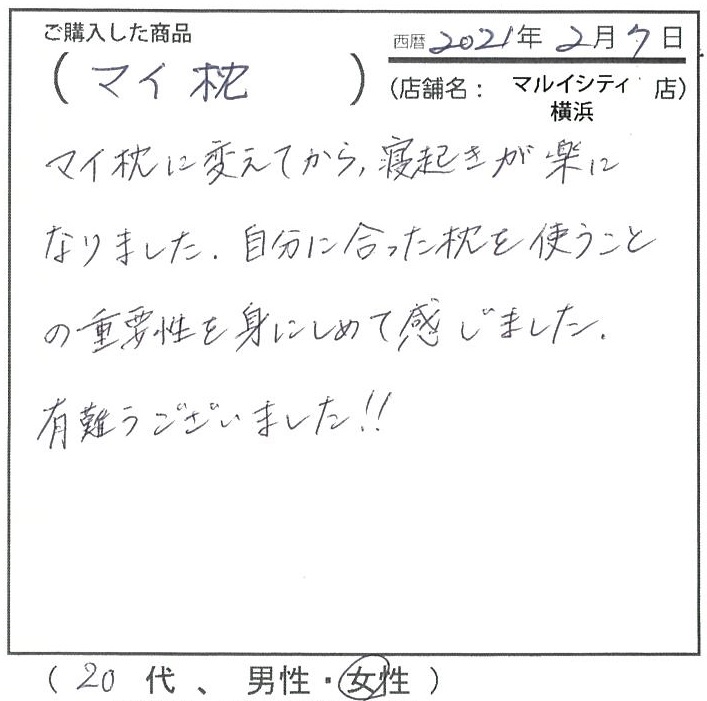 ご購入した商品
(マイ枕)
西暦2021年2月7日
(店舗名: マルイシティ横浜 店)
マイ枕に変えてから,寝起きが楽に
なりました.自分に合った枕を使うこと
の重要性を身にしめて感じました.
有難うございました!!
(20代、男性・女性)